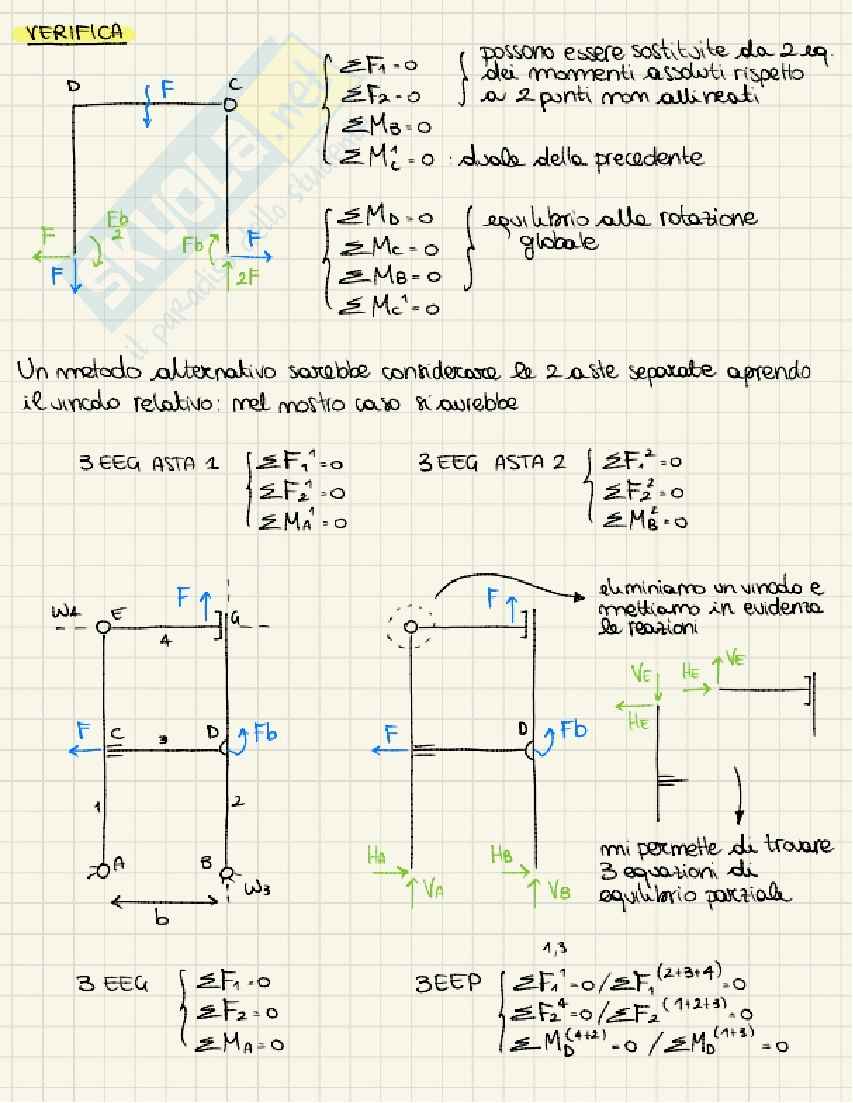 VERIFICA
D
F
C
F
Fb/2
F
Fb
F
2F
ΣF₁=0
ΣF₂=0
ΣM_B=0
ΣM_C¹=0 : duale della precedente
possono essere sostituite da 2 eq.
dei momenti assoluti rispetto
a 2 punti non allineati
ΣM_D=0
ΣM_C=0
ΣM_B=0
ΣM_C¹=0
equilibrio alla rotazione
globale
SKUOLA.net
il paradiso dello
Un metodo alternativo sarebbe considerare le 2 aste separate aprendo
il vincolo relativo: nel nostro caso si avrebbe
3 EEG ASTA 1
ΣF₁¹=0
ΣF₂¹=0
ΣM_A¹=0
3 EEG ASTA 2
ΣF₁²=0
ΣF₂²=0
ΣM_B²=0
E
F
G
4
F
C
3
D
Fb
1
2
A
B
W3
b
F
F
D
Fb
HA
VA
HB
VB
eliminiamo un vincolo e
mettiamo in evidenza
le reazioni
VE
HE
HE
VE
mi permette di trovare
3 equazioni di
equilibrio parziale
3 EEG
ΣF₁=0
ΣF₂=0
ΣM_A=0
1,3
3 EEP
ΣF₁¹=0/ΣF₁^(2+3+4)=0
ΣF₂⁴=0/ΣF₂^(1+2+3)=0
ΣM_D^(4+2)=0 / ΣM_D^(1+3)=0